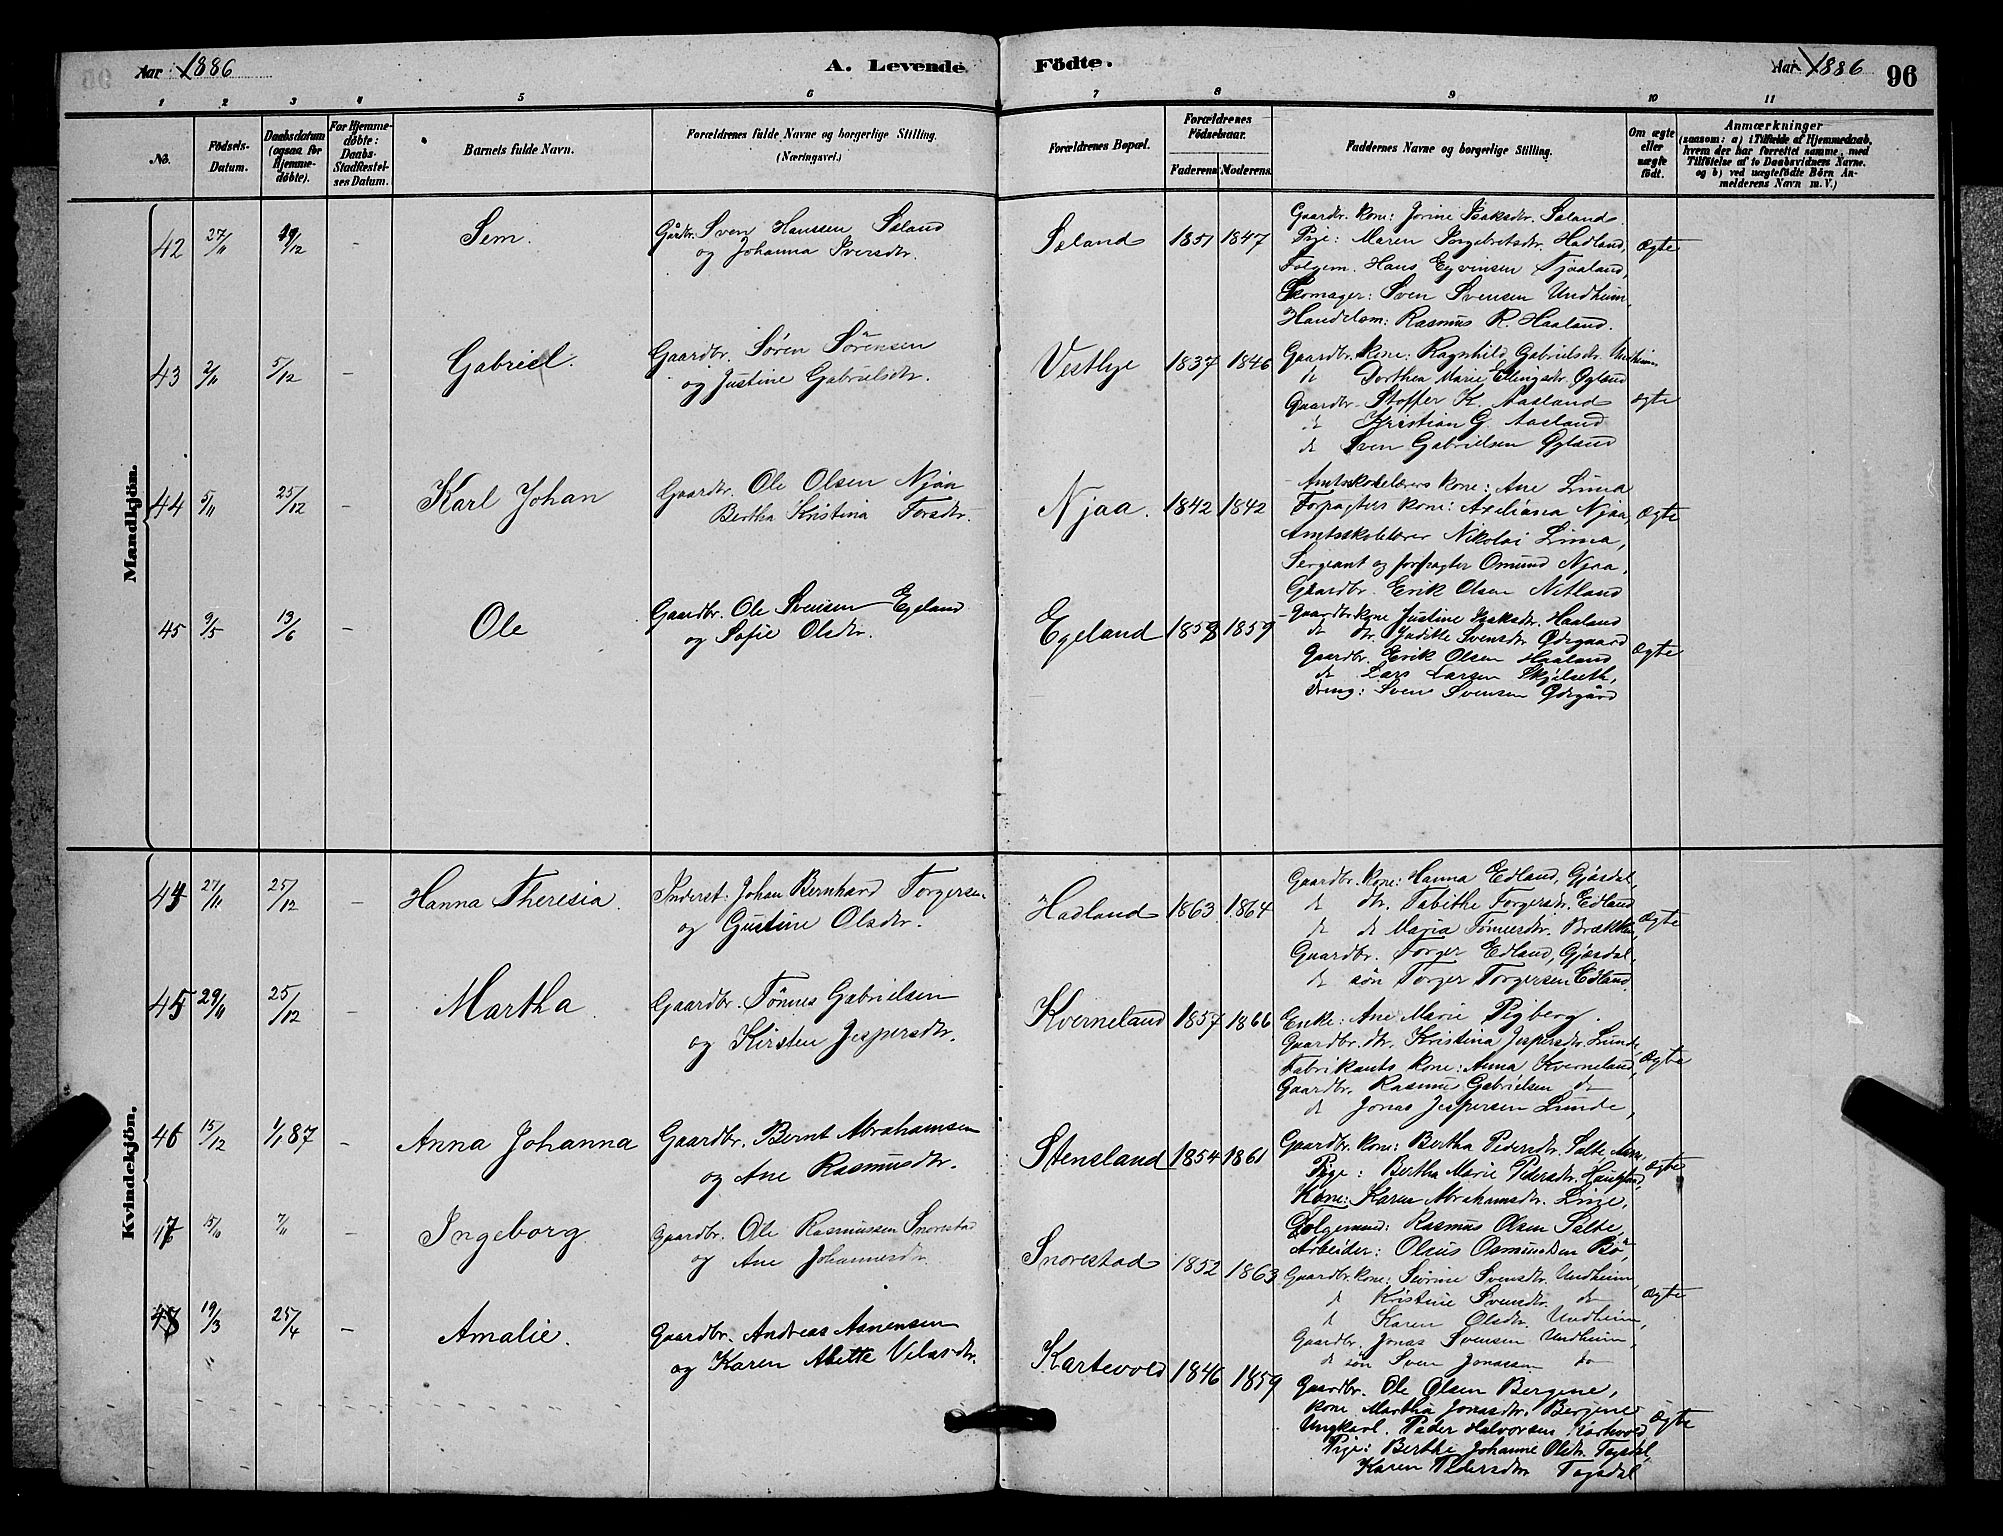 Aar 1886
A. Levende Födte.
Aar 1886 96
1 2 3 4 5 6 7 8 9 10 11
No.
Födsels-Datum.
Daabsdatum (ogsaa for Hjemme-döbte).
For Hjemme-döbte: Daabs-Stadfæstel-ses Datum.
Barnets fulde Navn.
Forældrenes fulde Navne og borgerlige Stilling.
(Næringsvei.)
Forældrenes Bopæl.
Forældrenes Födselsaar.
Faderens Moderens
Faddernes Navne og borgerlige Stilling.
Om ægte eller uægte födt.
Anmærkninger
(saasom: a) i Tilfælde af Hjemmedaab,
hvem der har forrettet samme, med
Tilföielse af to Daabsvidners Navne,
og b) ved uægtefödte Börn An-
melderens Navn m. V.)
Mandkjön.
42 27/11 19/12 - Sem.
Gårdbr. Sven Hanssen Sæland
og Johanna Iversdtr.
Sæland 1851 1847
Gaardbr. kone: Jorine Isaksdr. Sæland.
Pige: Maren Torgebretsdtr. Hadland,
Folgem. Hans Eyvinsen Njaaland,
Skomager: Sven Svensen Undheim,
Handelsm: Rasmus R. Haaland.
Ægte
43 2/11 5/12 - Gabriel.
Gaardbr. Søren Sørensen
og Justine Gabrielsdtr.
Vestlye 1837 1846
Gaardbr. kone: Ragnhild Gabrielsdtr. Undheim
do Dorthea Marie Ellingsdtr. Øgland
Gaardbr. Stoffer K. Aasland
do Kristian G. Aasland
do Sven Gabrielsen Øgland
ægte
44 5/11 25/12 - Karl Johan
Gaardbr. Ole Olsen Njaa
Bertha Kristina Torsdtr.
Njaa. 1842 1842
Amtsskolelærers kone: Ane Lima
Forpagters kone: Axeliana Njaa,
Amtsskolelærer Nikolai Lima,
Sergeant og forpagter Omund Njaa,
Gaardbr. Erik Olsen Netland
Ægte
45 9/5 13/6 - Ole
Gaardbr. Ole Svensen Egeland
og Sofie Olsdtr.
Egeland 1858 1859
Gaardbr. kone Justine Isaksdtr. Haaland
do dtr. Judithe Svensdtr Ødegaard
Gaardbr. Erik Olsen Haaland
do Lars Larsen Skjelseth,
dreng: Sven Svensen Ødegård
Ægte
Kvindekjön.
44 27/11 25/12 - Hanna Theresia.
Inderst: Johan Bernhard Torgersen.
og Gustine Olsdtr.
Hadland 1863 1864
Gaardbr. kone: Hanna Edland, Gjøsdal,
do dtr. Tabithe Torgersdtr. Edland
do do Maria Tønnesdtr. Brækken,
Gaardbr. Torger Edland, Gjøsdal,
do søn Torger Torgersen Edland,
Ægte
45 29/11 25/12 Martha.
Gaardbr. Tönnes Gabrielsen
og Kirsten Jespersdtr.
Kverneland 1857 1866
Enke: Ane Marie Pigberg.
Gaardbr. dtr. Kristina Jespersdtr. Lunde,
Fabrikants kone: Anna Kverneland,
Gaardbr. Rasmus Gabrielsen do
do Jonas Jespersen Lunde,
Ægte
46 15/12 1/1 87 - Anna Johanna
Gaardbr. Bernt Abrahamsen
og Ane Rasmusdtr.
Stensland 1854 1861
Gaardbr. kone: Bertha Pedersdtr. Salte
Pige: Bertha Marie Pedersdtr.
Kone: Karen Abrahamsdtr. Linje,
Folgemand: Rasmus Olsen Salte,
Arbeider: Olaus Osmundsen Bø,
ægte
47 15/10 7/11 - Ingeborg.
Gaardbr. Ole Rasmussen Snorestad
og Ane Johannesdtr.
Snorestad 1852 1863
Gaardbr. kone: Serine Svensdtr. Undheim,
do Kristine Svensdtr. do
do Karen Olsdtr. Undheim,
Gaardbr. Jonas Svensen Undheim,
do søn Sven Jonassen do
Ægte
48 19/3 25/4 - Amalie.
Gaardbr. Andreas Asnensen
og Karen Mette Velasdtr.
Kartevold 1846 1859
Gaardbr. Ole Olsen Bergene,
kone Martha Jonasdtr. Berjene
Ungkarl. Peder Halvorsen Kartevold,
Pige: Berthe Johanne Olsdtr. Tagsdal,
Karen Pedersdtr Tagsdal
Ægte